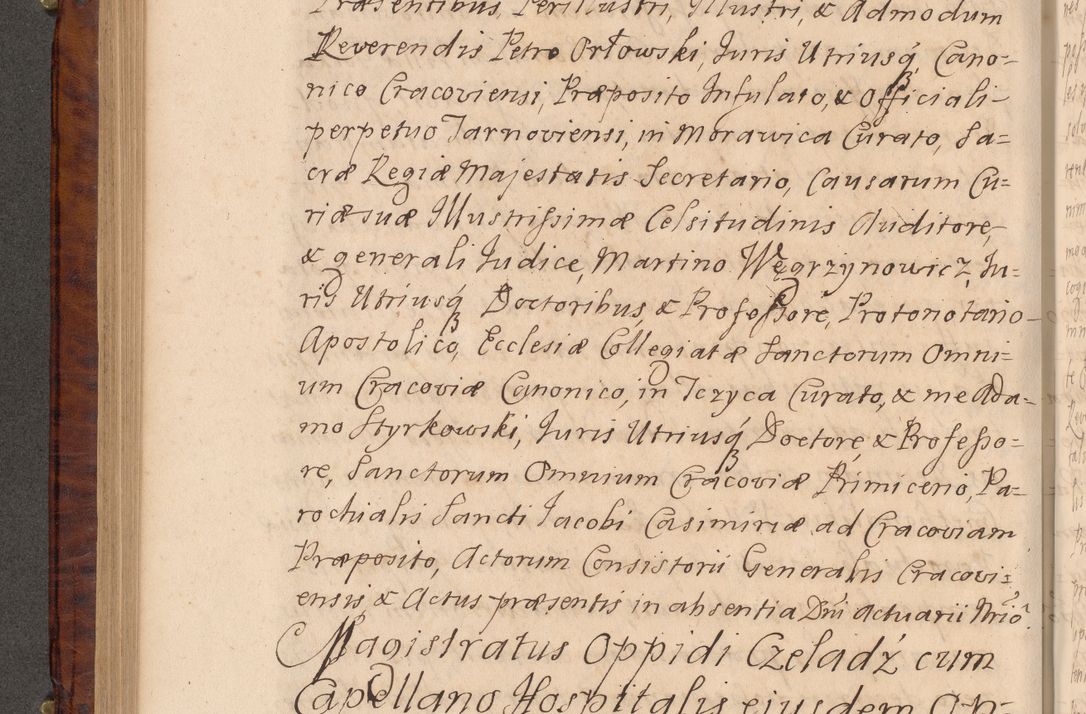 Præsentibus, Perillustri, Illustri, & Admodum
Reverendis Petro Orłowski, Iuris Utriusq́, Cano=
nico Cracoviensi, Præposito Infulato, & Officiali
perpetuo Tarnoviensi, in Morawica Curato, Sa=
cræ Regiæ Majestatis Secretario, Causarum Cu=
riæ suæ Illustrissimæ Celsitudinis Auditore,
& generali Iudice, Martino Węgrzynowicz, Iu=
ris Utriusq́ Doctoribus, & Professore, Protonotario
Apostolico, Ecclesiæ Collegiatæ Sanctorum Omni=
um Cracoviæ Canonico, in Tczyca Curato, & me Ada=
mo Styrkowski, Iuris Utriusq́ Doctore, & Professo=
re, Sanctorum Omnium Cracoviæ Primicerio, Pa=
rochialis Sancti Iacobi Casimiriæ ad Cracoviam
Præposito, Actorum Consistorii Generalis Cracovi=
ensis, & Actus præsentis in absentia Dni Actuarii Nrio.
Magistratus Oppidi Czeladź cum
Capellano Hospitalis ejusdem Op=